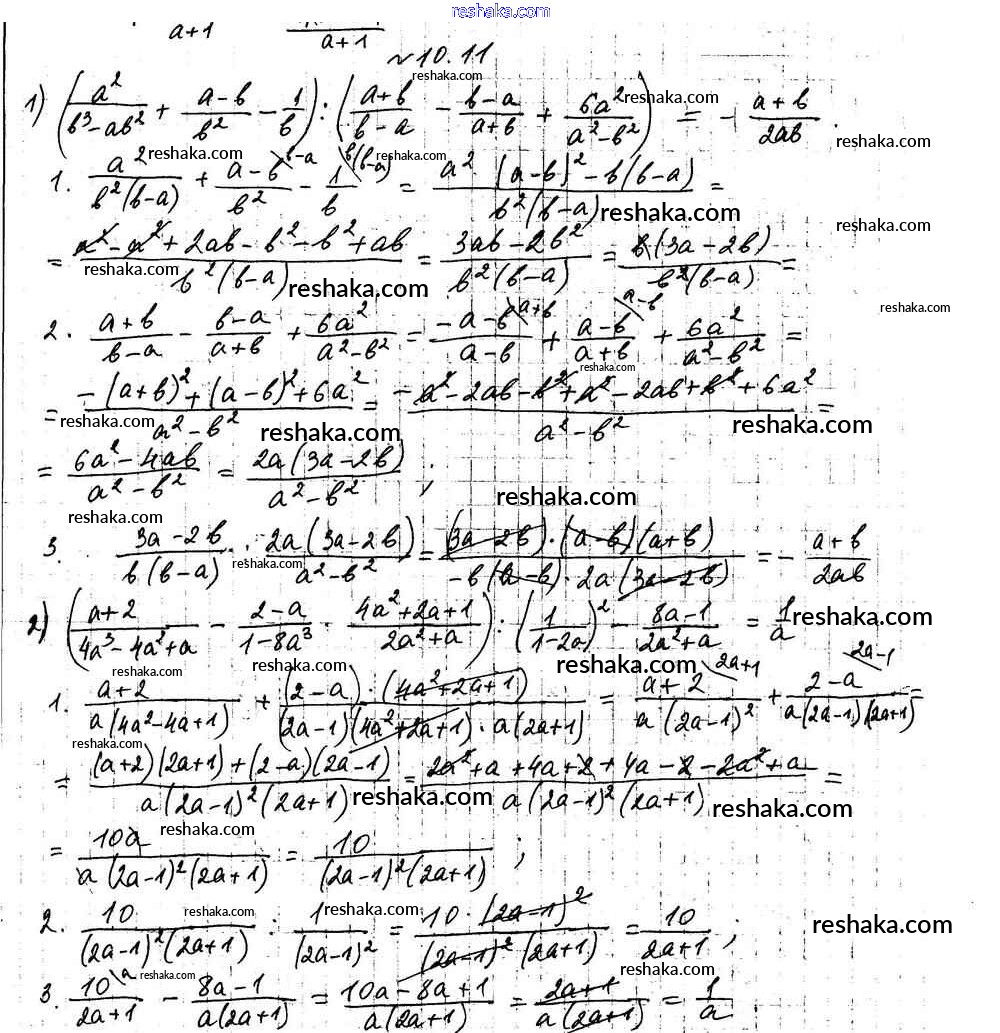 reshaka.com
a+1 a+1
№10.11
1) (a²/(b³-ab²) + (a-b)/b² - 1/b) : ((a+b)/(b-a) - (b-a)/(a+b) + 6a²/(a²-b²)) = -(a+b)/2ab.
1. a²/(b²(b-a)) + (a-b)/b² \b-a - 1/b \b(b-a) = (a² (a-b)² - b(b-a))/(b²(b-a)) =
= (a² - a² + 2ab - b² - b² + ab)/(b²(b-a)) = (3ab-2b²)/(b²(b-a)) = b(3a-2b)/(b²(b-a)) =
2. (a+b)/(b-a) - (b-a)/(a+b) + 6a²/(a²-b²) = (-a-b)/(a-b) \a+b + (a-b)/(a+b) \a-b + 6a²/(a²-b²) =
= (-(a+b)² + (a-b)² + 6a²)/(a²-b²) = (-a² - 2ab - b² + a² - 2ab + b² + 6a²)/(a²-b²) =
= (6a²-4ab)/(a²-b²) = 2a(3a-2b)/(a²-b²) ;
3. (3a-2b)/(b(b-a)) : 2a(3a-2b)/(a²-b²) = (3a-2b)·(a-b)(a+b)/(-b(a-b)·2a(3a-2b)) = -(a+b)/2ab
2) ((a+2)/(4a³-4a²+a) - (2-a)/(1-8a³) · (4a²+2a+1)/(2a²+a)) : (1/(1-2a))² - (8a-1)/(2a²+a) = 1/a
1. (a+2)/(a(4a²-4a+1)) + (2-a)·(4a²+2a+1)/((2a-1)(4a²+2a+1)·a(2a+1)) = (a+2)/(a(2a-1)²) \2a+1 + (2-a)/(a(2a-1)(2a+1)) \2a-1 =
= ((a+2)(2a+1)+(2-a)(2a-1))/(a(2a-1)²(2a+1)) = (2a²+a+4a+2+4a-2-2a²+a)/(a(2a-1)²(2a+1)) =
= 10a/(a(2a-1)²(2a+1)) = 10/((2a-1)²(2a+1)) ;
2. 10/((2a-1)²(2a+1)) : 1/(2a-1)² = 10·(2a-1)²/((2a-1)²(2a+1)) = 10/(2a+1) ;
3. 10/(2a+1) \a - (8a-1)/(a(2a+1)) = (10a-8a+1)/(a(2a+1)) = (2a+1)/(a(2a+1)) = 1/a